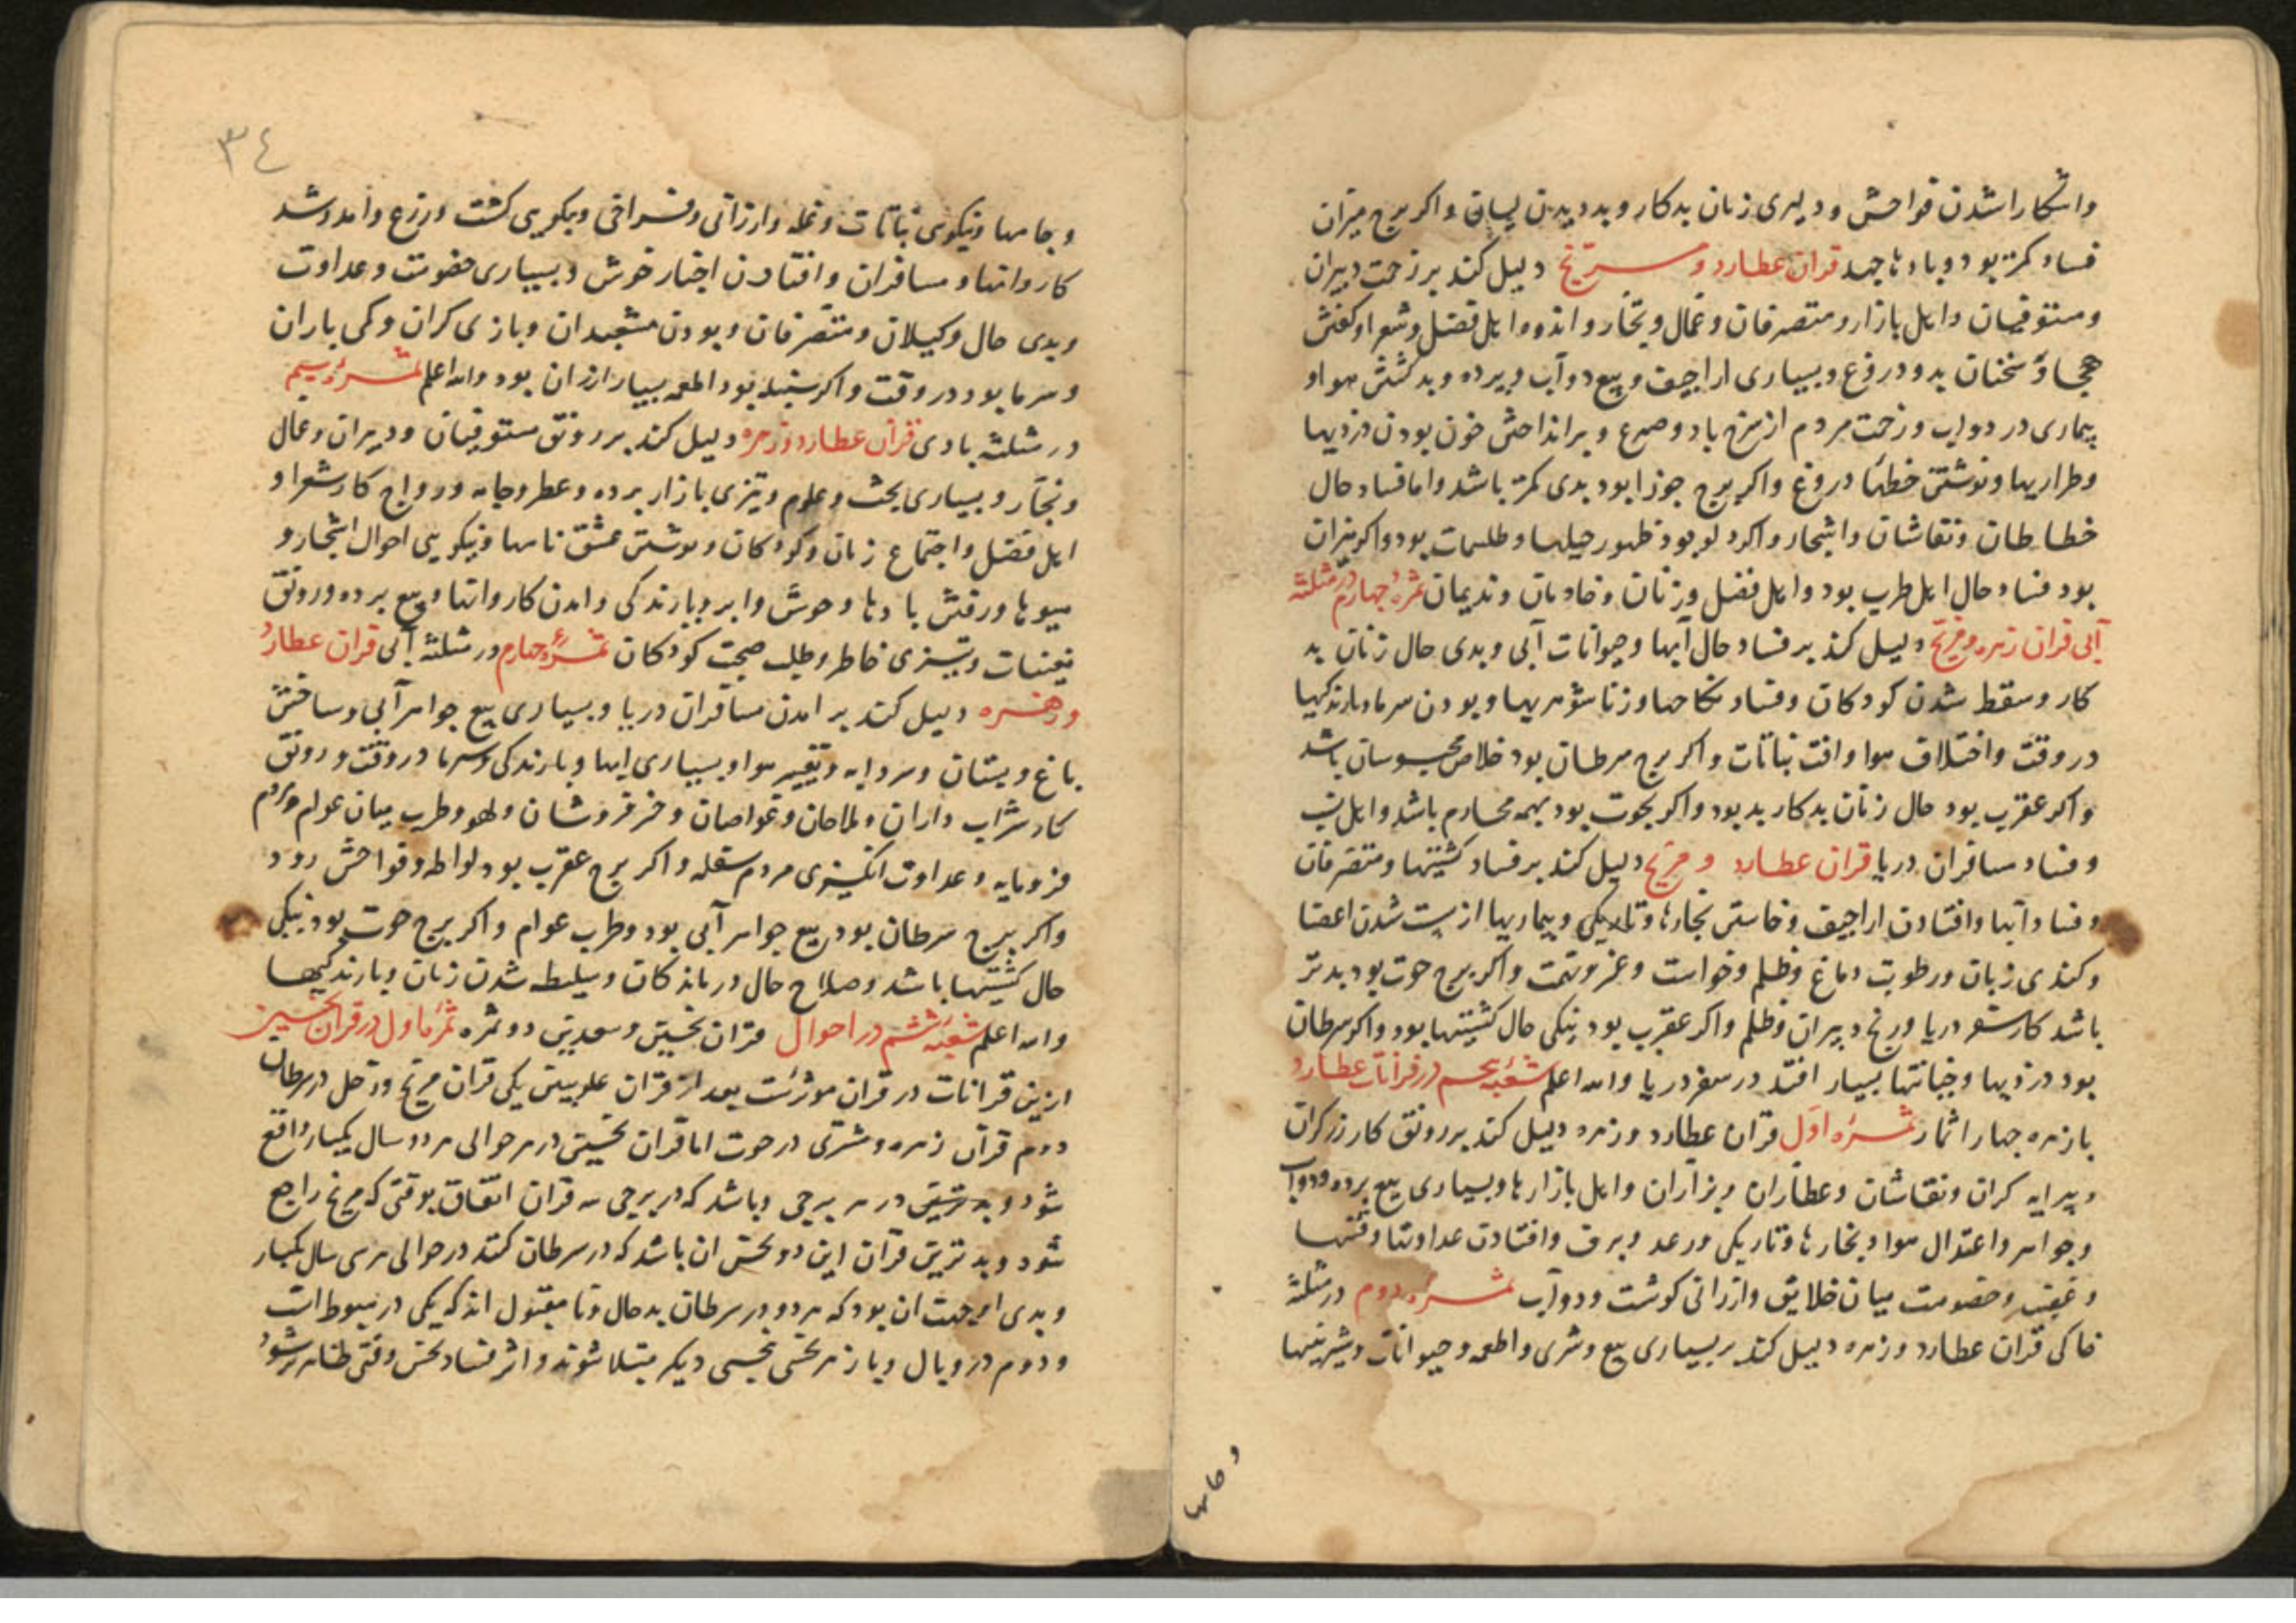 واشکارا شدن فواحش و دلیری زنان بدکار و بد دیدن لیسان و اکر برج میزان
فساد کمتر بود و بادها جهد قران عطارد و مریخ دلیل کند بر زحمت دبیران
و مستوفیان و اهل بازار و متصرفان و عمال و تجار و اندوه اهل فضل و شعرا و کفتن
هجا و سخنان بد و دروغ و بسیاری اراجیف و بیع دوآب و برده و بد کشتن هوا و
بیماری در دواب و زحمت مردم از مزخ باد و صرع و برانداختن خون بودن دزدیها
و طراریها و نوشتن خطها دروغ و اکر برج جوزا بود بدی کمتر باشد و اما فساد حال
خطاطان و نقاشان و اشجار و اکر دلو بود ظهور حیلها و طلسمات بود و اکر میزان
بود فساد حال اهل طرب بود و اهل فضل و زنان و خادمان و ندیمان ثمرهٔ چهارم در مثلثه
آبی قران زهره و مریخ دلیل کند بر فساد حال آبها و حیوانات آبی و بدی حال زنان بد
کار و سقط شدن کودکان و فساد نکاحها و زناشوهریها و بودن سرما و بارندکیها
در وقت و اختلاف هوا و افت نباتات و اکر برج سرطان بود خلاص محبوسان باشد
و اکر عقرب بود حال زنان بدکار بد بود و اکر بحوت بود بهمه محارم باشد و اهل
و فساد مسافران دریا قران عطارد و مریخ دلیل کند بر فساد کشتیها و متصرفان
و فساد آبها و افتادن اراجیف و خاستن بخارها و تاریکی و بیماریها از سست شدن اعضا
و کندی زبان و رطوبت دماغ و ظلم و خواست و عز و تهمت و اکر برج حوت بود بدتر
باشد کار سفر دریا و رنج دبیران و ظلم و اکر عقرب بود نیکی حال کشتیها بود و اکر سرطان
بود دزدیها و خیانتها بسیار افتد در سفر دریا والله اعلم شعبهٔ پنجم در قرانات عطارد
با زهره چهار اثمار ثمرهٔ اول قران عطارد و زهره دلیل کند بر رونق کار زرکران
و پیرایه کران و نقاشان و عطاران و بزازان و اهل بازارها و بسیاری بیع برده و دواب
و جواهر و اعتدال هوا و بخارها و تاریکی و رعد و برق و افتادن عداوتها و فتنها
و غضب و خصومت میان خلایق و ارزانی کوشت و دوآب ثمرهٔ دوم در مثلثهٔ
خاکی قران عطارد و زهره دلیل کند بر بسیاری بیع و شری و اطعمه و حیوانات و شیرینیها
و جامها
٣٤
و جامها و نیکوی نباتات و غله و ارزانی و فراخی و نیکویی کشت و زرع و آمد و شد
کاروانها و مسافران و افتادن اخبار خوش و بسیاری خصومت و عداوت
و بدی حال وکیلان و متصرفان و بودن مشعبدان و بازی کران و کمی باران
و سرما بود در وقت و اکر سنبله بود اطعمه بسیار ارزان بود والله اعلم ثمرهٔ سیم
در مثلثه بادی قران عطارد و زهره دلیل کند بر رونق مستوفیان و دبیران و عمال
و تجار و بسیاری بحث و علوم و تیزی بازار برده و عطر و جامه و رواج کار شعرا و
اهل فضل و اجتماع زنان و کودکان و نوشتن عشق نامها و نیکویی احوال اشجار و
میوها و رفتن بادها و خوش و ابر و بارندکی و امدن کاروانها و بیع برده و رونق
نعینات و تیزی خاطر و طلب صحبت کودکان ثمرهٔ چهارم در مثلثه آبی قران عطارد
و زهره دلیل کند بر امدن مسافران دریا و بسیاری بیع جواهر آبی و ساختن
باغ و بستان و سردابه و تغییر هوا و بسیاری ابها و بارندکی و سرما در وقت و رونق
کار شراب داران و ملاحان و غواصان و خمر فروشان و لهو و طرب میان عوام و مردم
فرومایه و عداوت انکیزی مردم سفله و اکر برج عقرب بود لواطه و فواحش رود
و اکر برج سرطان بود بیع جواهر آبی بود و طرب عوام و اکر برج حوت بود نیکی
حال کشتیها باشد و صلاح حال درماندکان و سلیطه شدن زنان و بارندکیها
والله اعلم شعبهٔ ششم در احوال قران نحسین و سعدین دو ثمره ثمرهٔ اول در قران نحسین
ازین قرانات در قران موثرست بعد از قران علویین یکی قران مریخ و زحل در سرطان
دوم قران زهره و مشتری در حوت اما قران نحسین در هر حوالی هر دو سال یکبار واقع
شود و بدترین در هر برجی و باشد که در برجی سه قران اتفاق بوقتی که مریخ راجع
شود و بدترین قران این دو نحس ان باشد که در سرطان کنند در حوالی هر سی سال یکبار
و بدی از جهت ان بود که هر دو در سرطان بد حال و نا مقبول اند که یکی در هبوط است
و دوم در وبال و باز هر نحسی بنحسی دیکر مبتلا شوند و اثر فساد نحس وقتی ظاهر شود